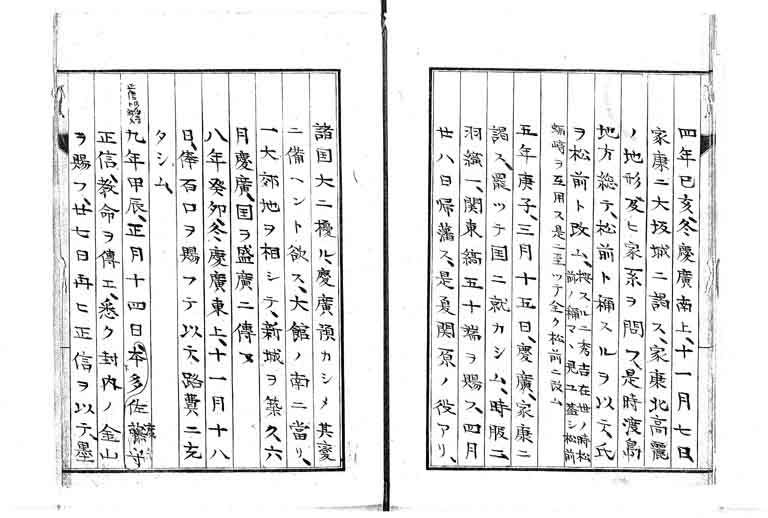 四年己亥、冬慶廣南上、十一月七日、
家康ニ大坂城ニ謁ス、家康北高麗
ノ地形及ヒ家系ヲ問フ、是時渡島
地方総テ、松前ト稱スルヲ以テ、氏
ヲ松前ト改ム、按スルニ秀吉在世ノ時松
前ノ稱マヽ見ユ蓋シ松前
蛎崎ヲ互用ス是ニ至ツテ全ク松前ニ改ム
五年庚子、三月十五日、慶廣、家康ニ
謁ス、罷ツテ国ニ就カシム、時服二、
羽織一、関東縞五十端ヲ賜フ、四月
廿八日帰藩ス、是夏関原ノ役アリ、
諸国大ニ擾ル、慶廣預カシメ其変
ニ備ヘント欲ス、大館ノ南ニ當リ、
一大郊地ヲ相シテ、新城ヲ築ク、六
月慶廣、国ヲ盛廣ニ傳フ
八年癸卯冬慶廣東上、十一月十八
日、俸百口ヲ賜フテ以テ、路費ニ充
タシム、
九年甲辰、正月十四日、本多佐渡守
正信、教命ヲ傳エ、悉ク封内ノ金山
ヲ賜フ、廿七日再ヒ正信ヲ以テ、墨